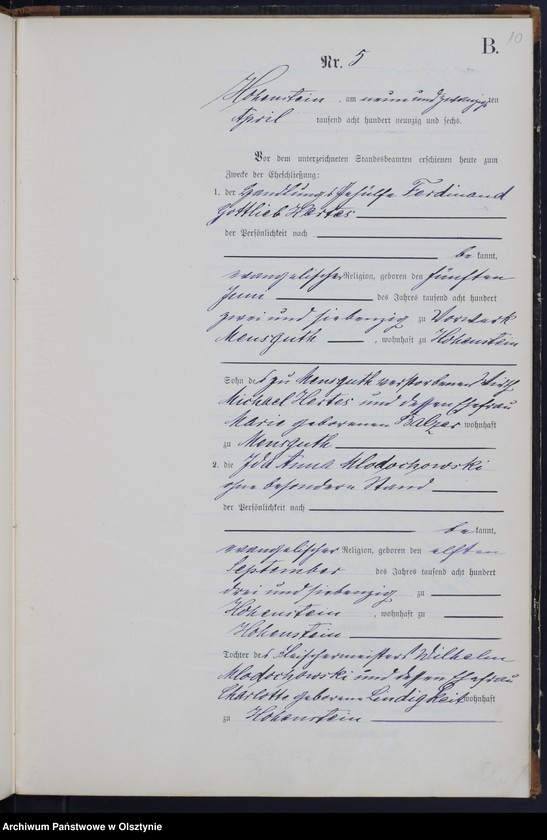 B.
10
Nr. 5
Hohenstein, am neunundzwanzigsten
April tausend acht hundert neunzig und sechs.
Vor dem unterzeichneten Standesbeamten erschienen heute zum
Zwecke der Eheschließung:
1. der Handlungsgehülfe Ferdinand
Gottlieb Hertes
der Persönlichkeit nach
be kannt,
evangelischer Religion, geboren den fünften
Juni des Jahres tausend acht hundert
zwei und siebenzig zu Vorwerk
Mensguth, wohnhaft zu Hohenstein
Sohn des zu Mensguth verstorbenen
Michael Hertes und dessen Ehefrau
Marie geborenen Balzer wohnhaft
zu Mensguth
2. die Ida Anna Mlodochowski
ohne besondern Stand
der Persönlichkeit nach
be kannt,
evangelischer Religion, geboren den elften
September des Jahres tausend acht hundert
drei und siebenzig zu
Hohenstein, wohnhaft zu
Hohenstein
Tochter des Fleischermeisters Wilhelm
Mlodochowski und dessen Ehefrau
Charlotte geborene Lindigkeit wohnhaft
zu Hohenstein
Archiwum Państwowe w Olsztynie